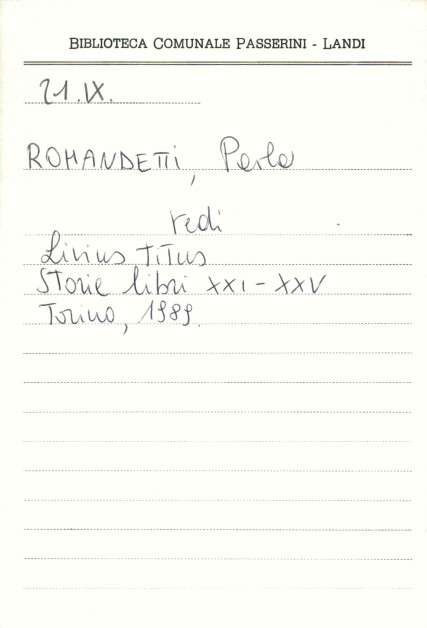 BIBLIOTECA COMUNALE PASSERINI - LANDI
21.IX.
ROMANDETTI, Perla
vedi
Livius Titus
Storie libri XXI - XXV
Torino, 1989.